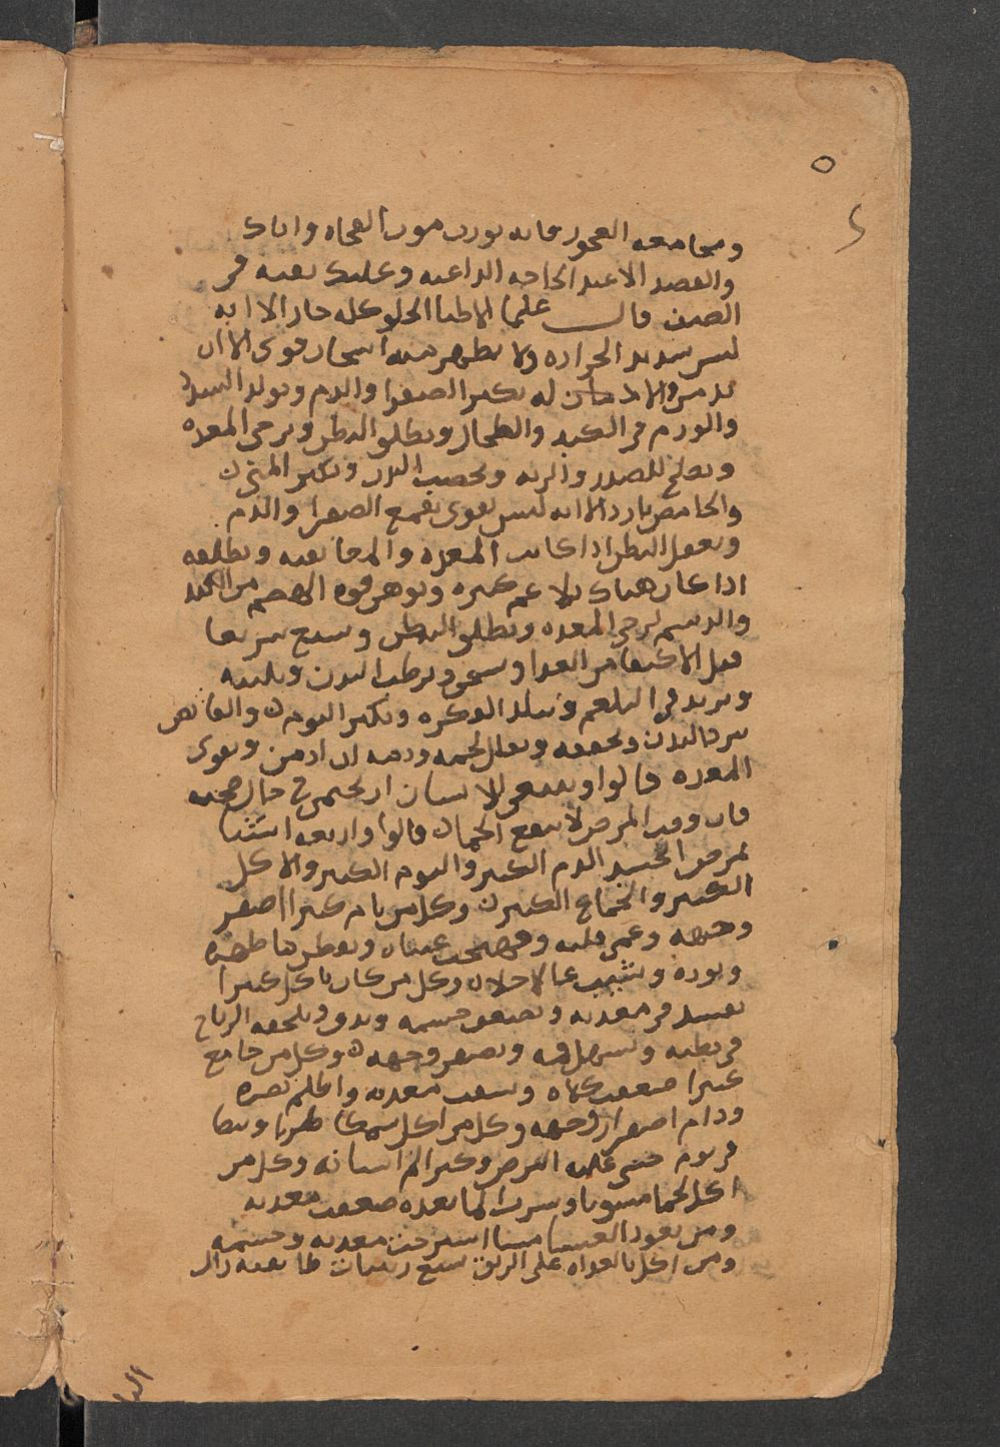 ٥
ومجامعه العجوز فانه يورث موت الفجاه واياك
والفصد الا عند الحاجه الداعيه وعليك بقيه في
الصيف قال علما الاطبا الحلو كله حار الا انه
ليس شديد الحراره ولا يظهر منه اسخان قوي الا ان
يدمن والادمان له يكثر الصفرا والدم ويولد السدد
والورم في الكبد والطحال ويطلق البطن ويرخي المعده
ويصلح للصدر والريه ويخصب البدن ويكثر المني
والحامض بارد الا انه ليس بقوي يقمع الصفرا والدم
ويعقل البطن اذا كانت المعده والمعا نقيه ويطلقه
اذا كان هناك بلاغم كثيره ويوهن قوه الهضم من الكبد
والدسم يرخي المعده ويطلق البطن ويشبع سريعا
قبل الاكتفا من الغدا ويسخن ويرطب البدن ويلينه
ويزيد في البلغم ويبلد الفكره ويكثر النوم والقابض
يبرد البدن ويجففه ويقلل لحمه ودمه ان ادمن ويقوي
المعده قالوا وينبغي للانسان ان يحتمي في حال صحته
فان وقت المرض لا ينفع الحميه قالوا واربعه اشيا
تمرض الجسد الدم الكثير والنوم الكثير والاكل
الكثير والجماع الكثير وكل من نام كثيرا اصفر
وجهه وعمي قلبه وهيجت عيناه
وكل من كان ياكل كثيرا
تفسد في معدته ويضعف جسمه ويدق ويلحقه الرياح
في بطنه ويصفر وجهه وكل من جامع
كثيرا ضعفت كلاه وضعفت معدته واظلم بصره
ودام اصفرار وجهه وكل من اكل سمكا طريا وبيضا
في يوم خشي عليه المرض وكثر الم اسنانه وكل من
اكل لحما مشويا وشرب الما بعده ضعفت معدته
ومن تعود العشا مسا استرخت معدته وجسمه
ومن اكل بالغداه على الريق سبع زبيبات